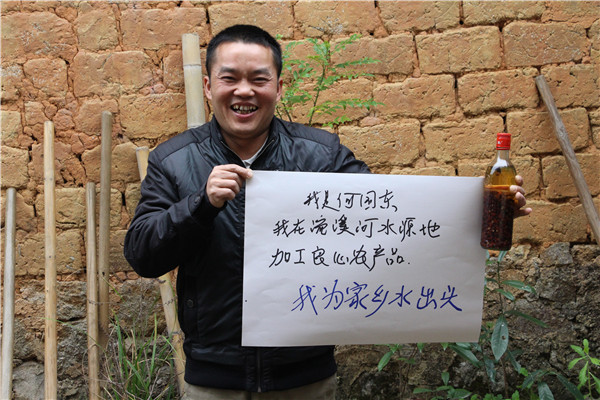 我是何国东
我在流溪河水源地
加工良心农产品.
我为家乡水出头